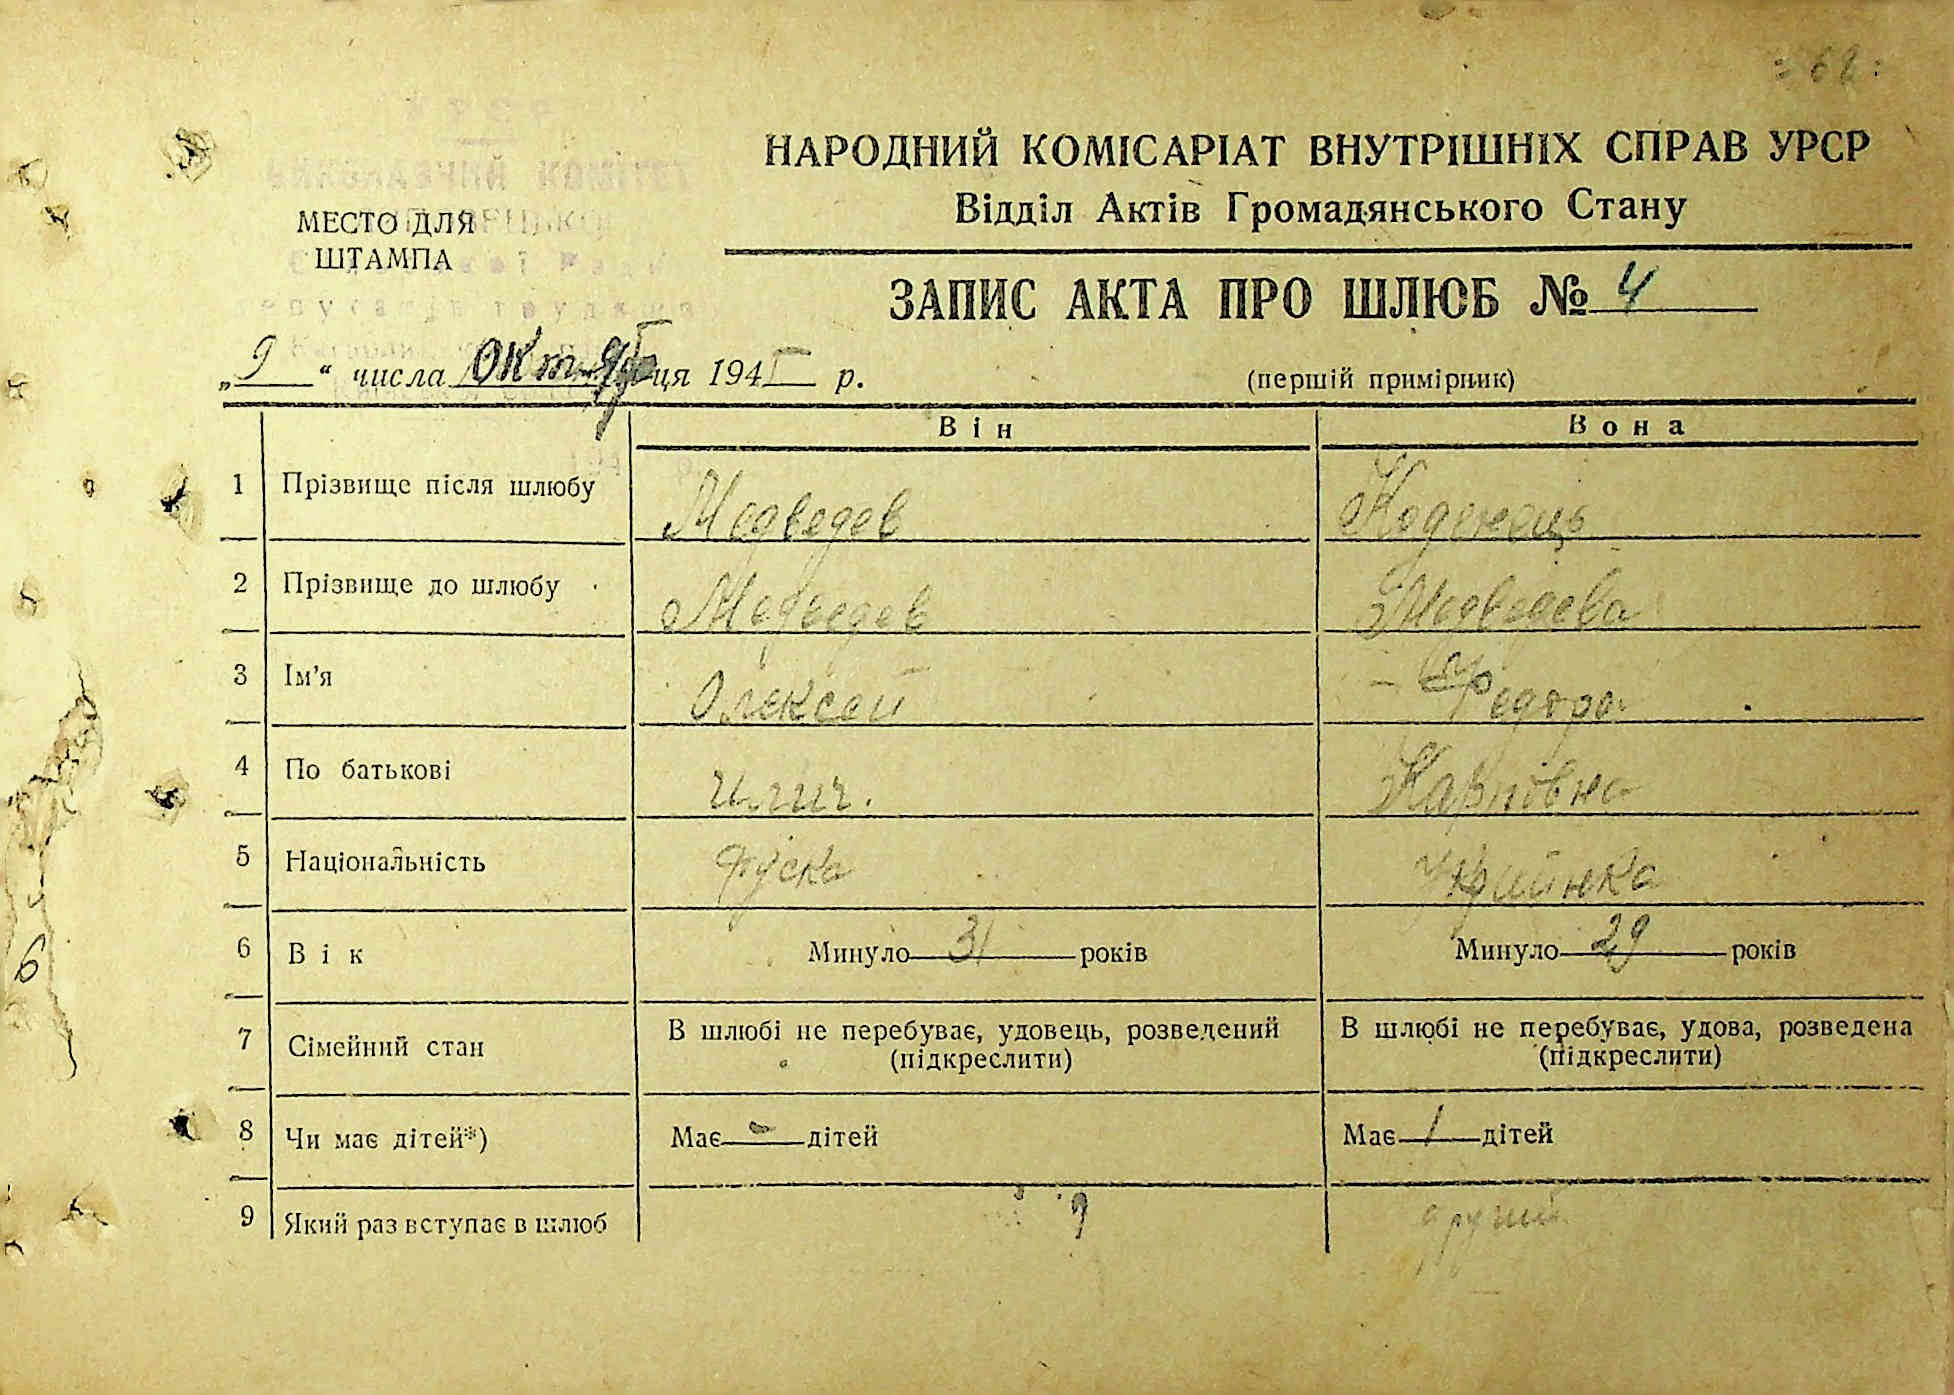 : 68 :
НАРОДНИЙ КОМІСАРІАТ ВНУТРІШНІХ СПРАВ УРСР
Відділ Актів Громадянського Стану
МЕСТО ДЛЯ
ШТАМПА
ЗАПИС АКТА ПРО ШЛЮБ № 4
„9“ числа Октяб ця 1945 р.
(першій примірник)
Він Вона
1 Прізвище після шлюбу Медведев
2 Прізвище до шлюбу Медведев Медведева
3 Ім'я Олексей Федора
4 По батькові илич. Карповна
5 Національність руска Украинка
6 Вік Минуло 31 років Минуло 29 років
7 Сімейний стан В шлюбі не перебуває, удовець, розведений (підкреслити) В шлюбі не перебуває, удова, розведена (підкреслити)
8 Чи має дітей*) Має - дітей Має 1 дітей
9 Який раз вступає в шлюб другий
6